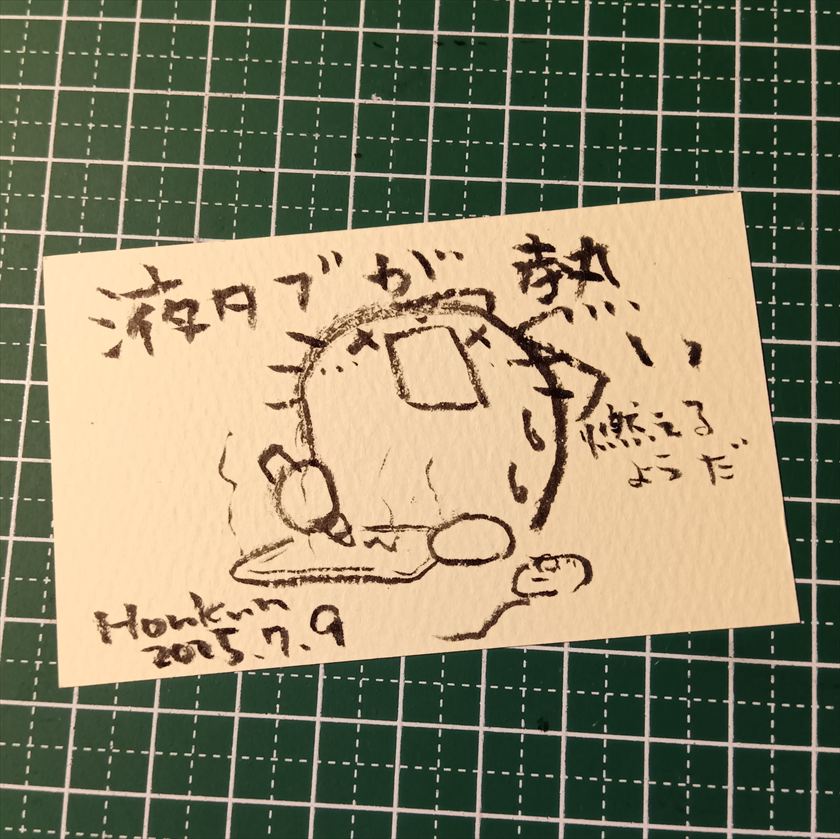 液タブが熱い
燃える
ようだ
Honkun
2025.7.9